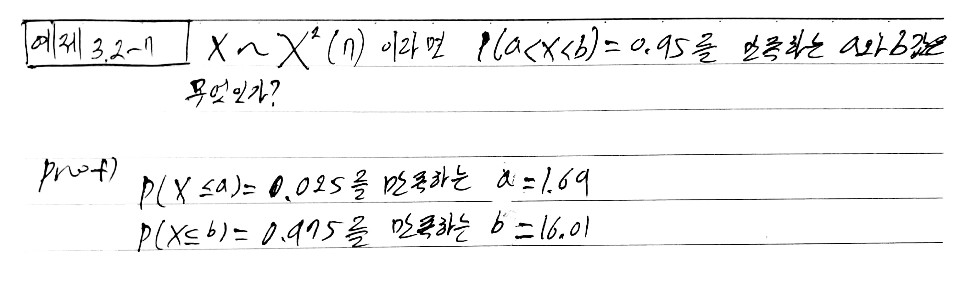 예제 3.2-7 X ~ χ²(7) 이라면 P(a<X<b)=0.95를 만족하는 a와 b값은
무엇인가?
proof)
P(X≤a)=0.025를 만족하는 a=1.69
P(X≤b)=0.975를 만족하는 b=16.01